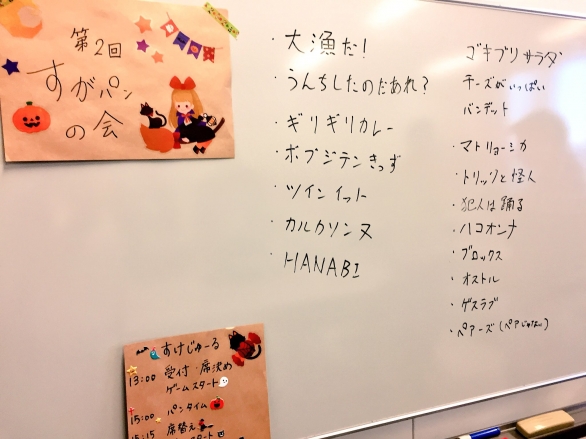 第2回
すがパン
の会
・大漁だ!
・うんちしたのだあれ?
・ギリギリカレー
・ボブジテンきっず
・ツインイット
・カルカソンヌ
・HANABI
ゴキブリサラダ
チーズがいっぱい
バンデット
・マトリョーシカ
・トリッツと怪人
・犯人は踊る
・ハコオンナ
・ブロックス
・オストル
・ゲスラブ
・ペアーズ(ペアじゃない)
すけじゅーる
13:00 受付・席決め
ゲームスタート
15:00 パンタイム
15:15 席替え